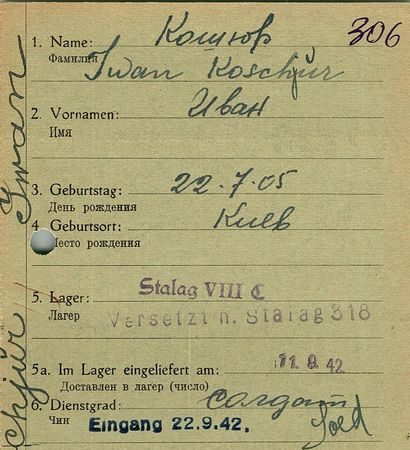 1. Name: Кошюр 306
Фамилия Iwan Koschjur
2. Vornamen: Иван
Имя
3. Geburtstag: 22.7.05
День рождения
4 Geburtsort: Киев
Место рождения
5. Lager: Stalag VIII C
Лагер Versetzt n. Stalag 318
5a. Im Lager eingeliefert am: 11.9.42
Доставлен в лагер (число)
6. Dienstgrad: солдат
Чин Eingang 22.9.42. Sold
Iwan
chjur